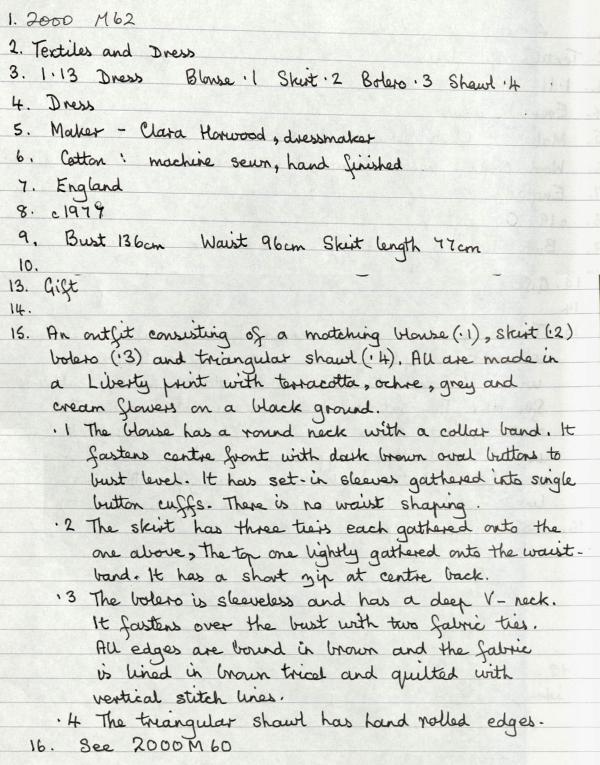 1. 2000 M62
2. Textiles and Dress
3. 1.13 Dress Blouse .1 Skirt .2 Bolero .3 Shawl .4
4. Dress
5. Maker - Clara Horwood, dressmaker
6. Cotton : machine sewn, hand finished
7. England
8. c1979
9. Bust 136cm Waist 96cm Skirt length 77cm
10.
13. Gift
14.
15. An outfit consisting of a matching blouse (.1), skirt (.2)
bolero (.3) and triangular shawl (.4). All are made in
a Liberty print with terracotta, ochre, grey and
cream flowers on a black ground.
.1 The blouse has a round neck with a collar band. It
fastens centre front with dark brown oval buttons to
bust level. It has set-in sleeves gathered into single
button cuffs. There is no waist shaping.
.2 The skirt has three tiers each gathered onto the
one above, the top one lightly gathered onto the waist-
band. It has a short zip at centre back.
.3 The bolero is sleeveless and has a deep V-neck.
It fastens over the bust with two fabric ties.
All edges are bound in brown and the fabric
is lined in brown tricel and quilted with
vertical stitch lines.
.4 The triangular shawl has hand rolled edges.
16. See 2000M60